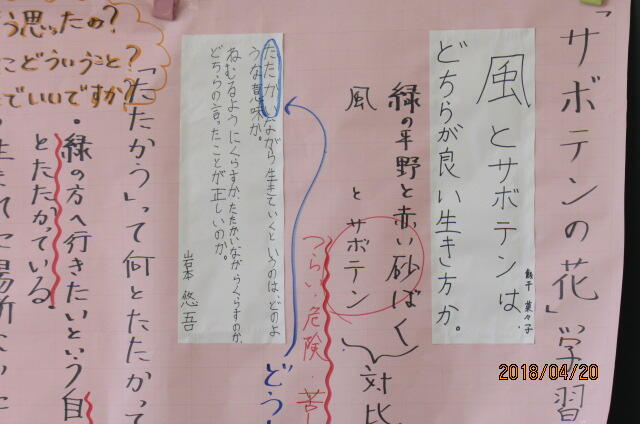 「サボテンの花」学習
風とサボテンは、
どちらが良い生き方か。
菜々子
緑の平野と赤い砂ばく
風 とサボテン
対比
つらい・危険・苦し
たたかいながら生きていくというのは、どのよ
うな意味か。
ねむるようにくらすか、たたかいながらくらすのか、
どちらの言ったことが正しいのか。
岩本 悠吾
どう
「たたかう」って何とたたかって
・緑の方へ行きたいという自
とたたかっている。
・生まれた場所
う思ったの?
こどういうこと?
でいいですか?
2018/04/20